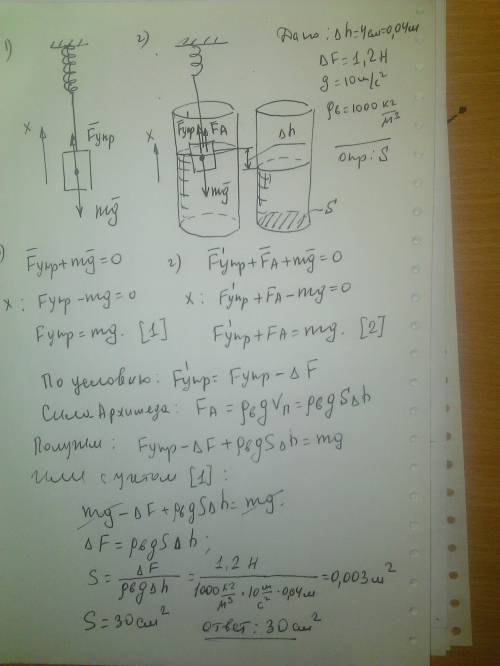 1)
2)
Дано: Δh=4см=0,04м
ΔF=1,2 Н
g=10м/с²
ρв=1000 кг/м³
опр: S
X
F̄упр
mḡ
X
F̄упр
F̄А
Δh
mḡ
S
1) F̄упр+mḡ=0
2) F̄'упр+F̄А+mḡ=0
X: Fупр-mg=0
X: F'упр+FА-mg=0
Fупр=mg. [1]
F'упр+FА=mg. [2]
По условию: F'упр=Fупр-ΔF
Сила Архимеда: FА=ρвgVп=ρвgSΔh
Получим: Fупр-ΔF+ρвgSΔh=mg
Или с учётом [1]:
mg-ΔF+ρвgSΔh=mg.
ΔF=ρвgSΔh;
S=ΔF/ρвgΔh=1,2 Н/1000 кг/м³·10 м/с²·0,04м=0,003м²
S=30см²
ответ: 30см²